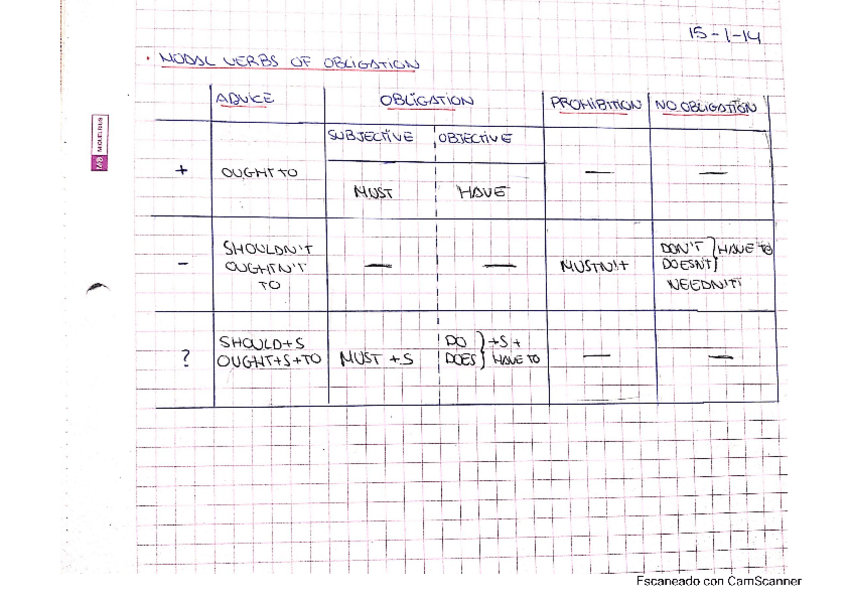 15-1-14
• MODAL VERBS OF OBLIGATION
ADVICE OBLIGATION PROHIBITION NO OBLIGATION
SUBJECTIVE OBJECTIVE
+ OUGHT TO MUST HAVE — —
- SHOULDN'T OUGHTN'T TO — — MUSTN'T DON'T DOESN'T } HAVE TO NEEDN'T
? SHOULD+S OUGHT+S+TO MUST +S DO DOES } +S+ HAVE TO — —
Escaneado con CamScanner